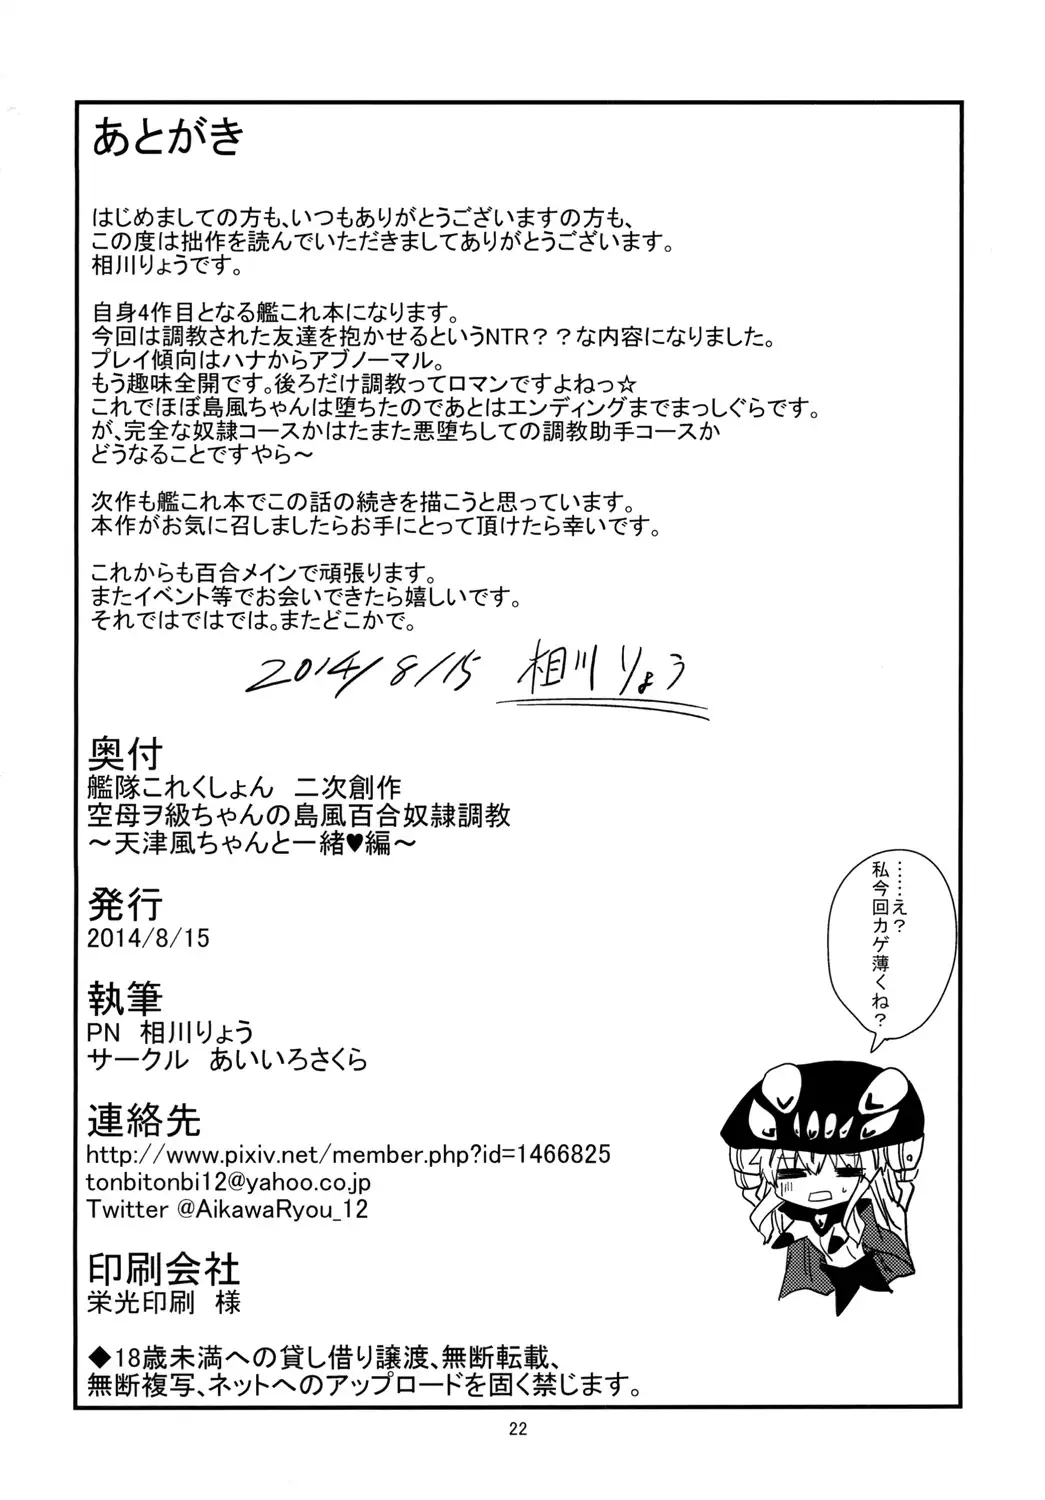 あとがき
はじめましての方も、いつもありがとうございますの方も、
この度は拙作を読んでいただきましてありがとうございます。
相川りょうです。
自身4作目となる艦これ本になります。
今回は調教された友達を抱かせるというNTR？？な内容になりました。
プレイ傾向はハナからアブノーマル。
もう趣味全開です。後ろだけ調教ってロマンですよねっ☆
これでほぼ島風ちゃんは堕ちたのであとはエンディングまでまっしぐらです。
が、完全な奴隷コースかはたまた悪堕ちしての調教助手コースか
どうなることですやら～
次作も艦これ本でこの話の続きを描こうと思っています。
本作がお気に召しましたらお手にとって頂けたら幸いです。
これからも百合メインで頑張ります。
またイベント等でお会いできたら嬉しいです。
それではではでは。またどこかで。
2014/8/15 相川りょう
奥付
艦隊これくしょん　二次創作
空母ヲ級ちゃんの島風百合奴隷調教
～天津風ちゃんと一緒♥編～
発行
2014/8/15
執筆
PN　相川りょう
サークル　あいいろさくら
連絡先
http://www.pixiv.net/member.php?id=1466825
tonbitonbi12@yahoo.co.jp
Twitter @AikawaRyou_12
印刷会社
栄光印刷　様
◆18歳未満への貸し借り譲渡、無断転載、
無断複写、ネットへのアップロードを固く禁じます。
……え？
私今回カゲ薄くね？
22